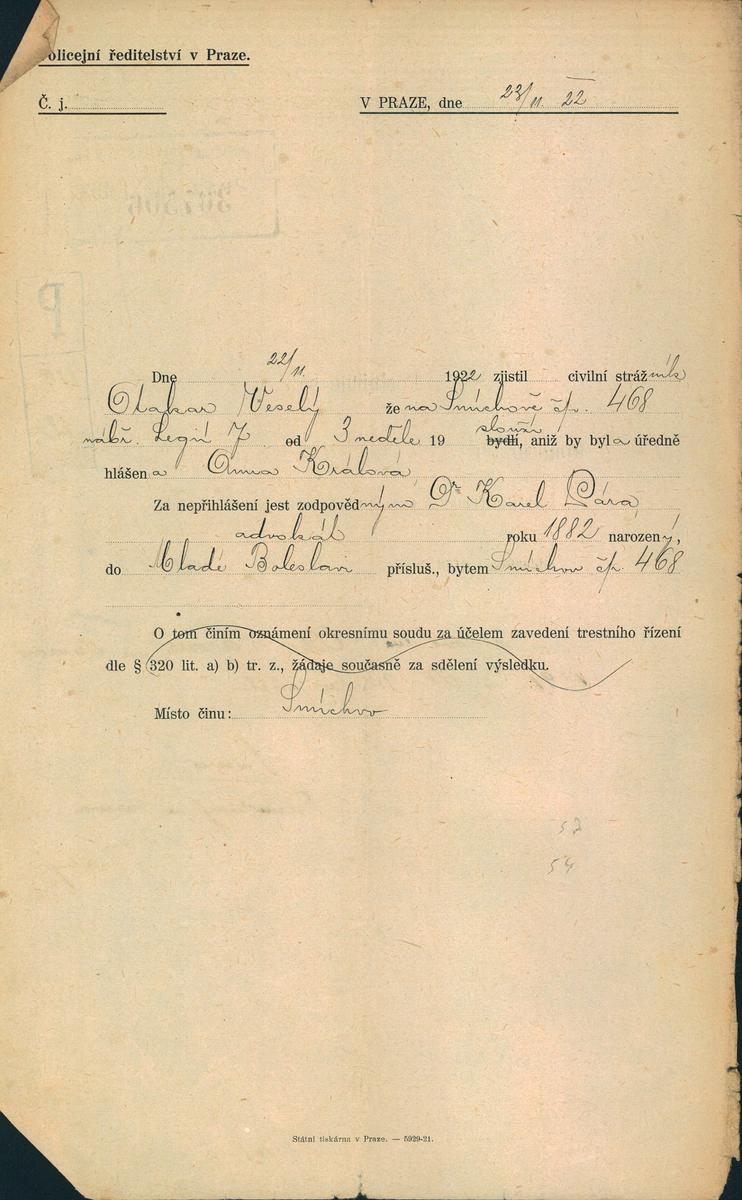 Policejní ředitelství v Praze.
Č. j.
V PRAZE, dne 23/11. 22
Dne 22/11. 1922 zjistil civilní strážník
Otakar Veselý že na Smíchově čp. 468
nábř. Legií 7 od 3 neděle 19 bydlí, slouží aniž by byla úředně
hlášena Anna Králová
Za nepřihlášení jest zodpovědným Dr Karel Pára,
advokát roku 1882 narozený,
do Mladé Boleslavi přísluš., bytem Smíchov čp. 468
O tom činím oznámení okresnímu soudu za účelem zavedení trestního řízení
dle § 320 lit. a) b) tr. z., žádaje současně za sdělení výsledku.
Místo činu: Smíchov
54
Státní tiskárna v Praze. — 5929-21.